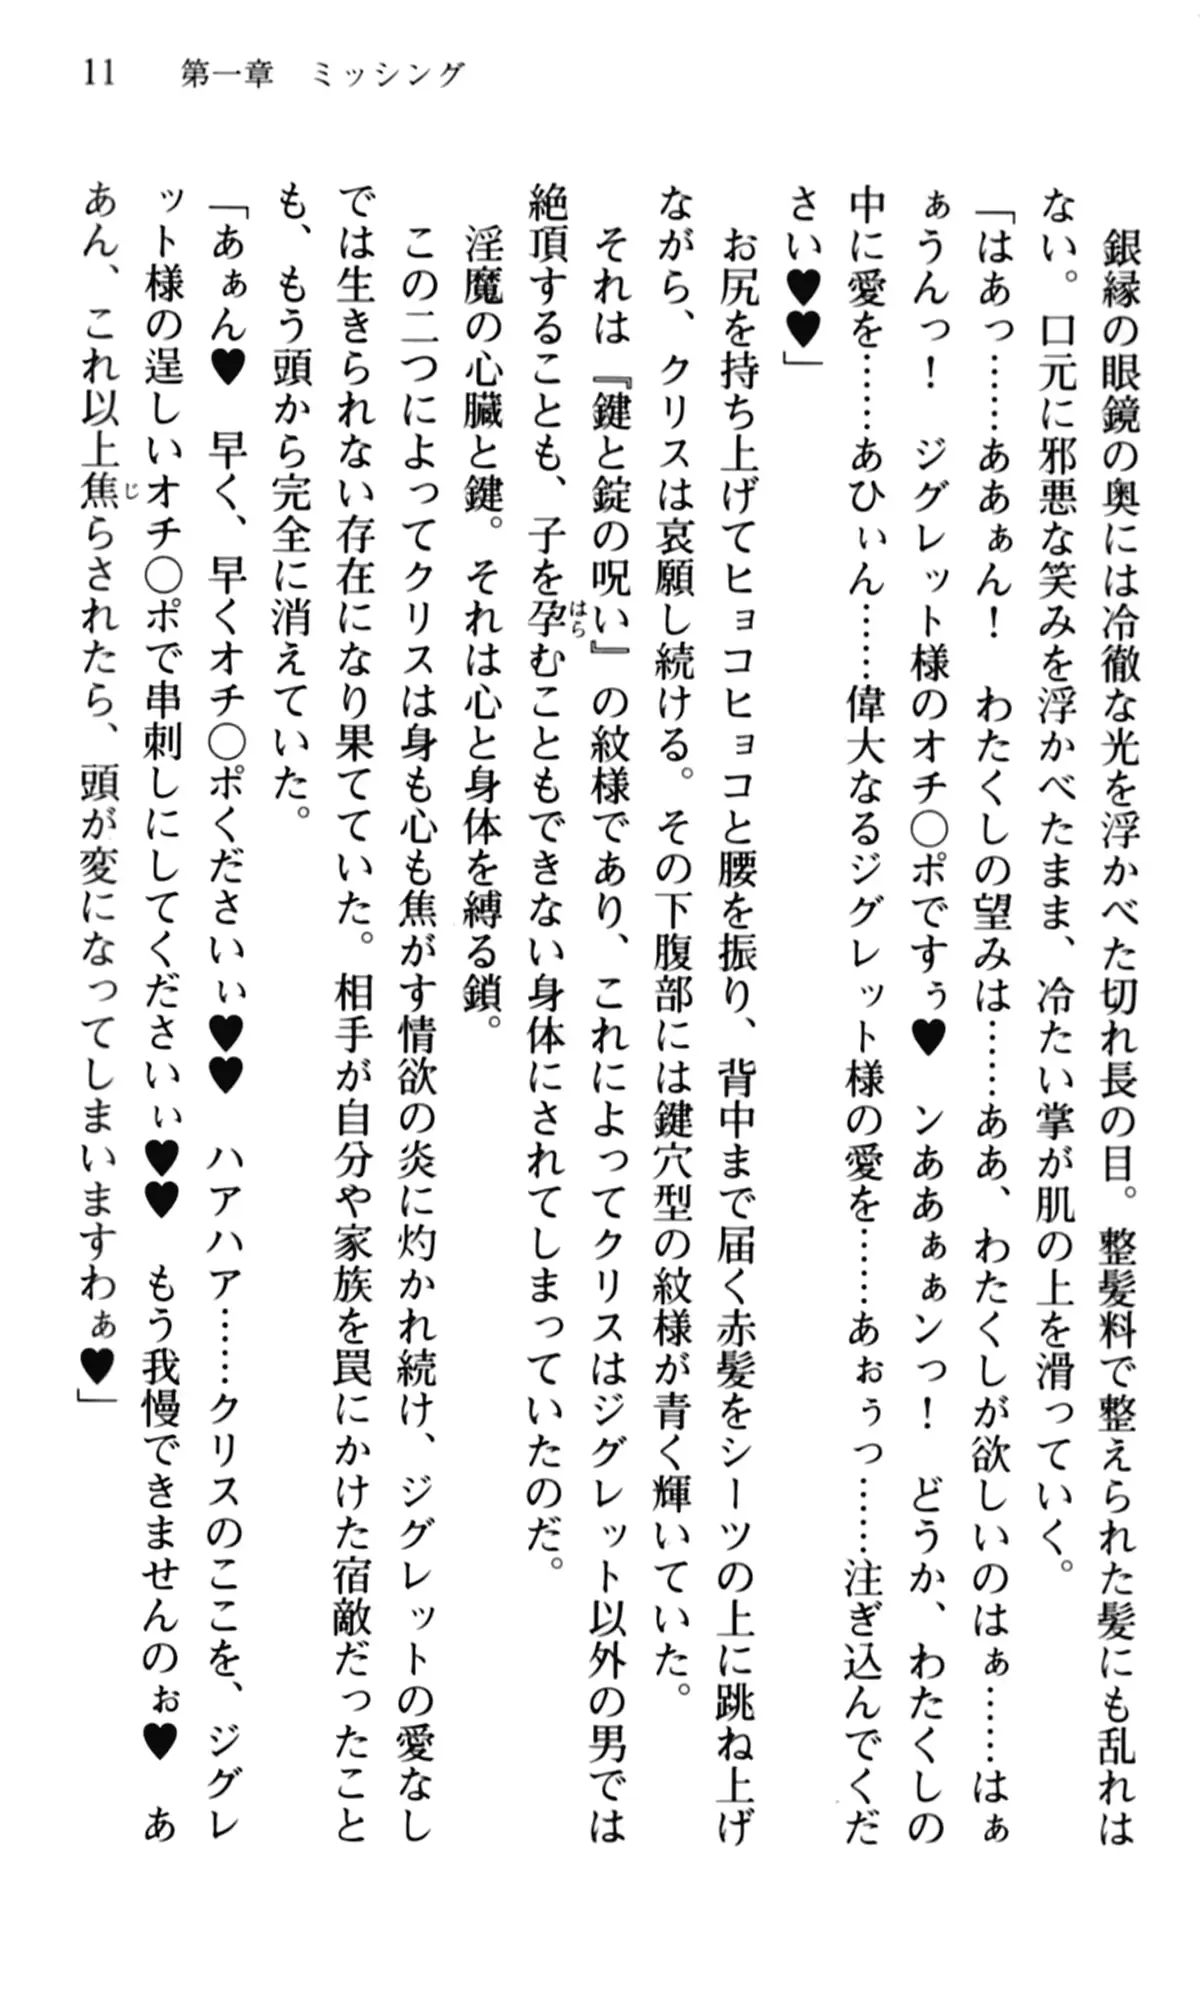 11　第一章　ミッシング
　銀縁の眼鏡の奥には冷徹な光を浮かべた切れ長の目。整髪料で整えられた髪にも乱れは
ない。口元に邪悪な笑みを浮かべたまま、冷たい掌が肌の上を滑っていく。
「はあっ……ああぁん！　わたくしの望みは……ああ、わたくしが欲しいのはぁ……はぁ
ぁうんっ！　ジグレット様のオチ◯ポですぅ♥　ンああぁぁンっ！　どうか、わたくしの
中に愛を……あひぃん……偉大なるジグレット様の愛を……あぉぅっ……注ぎ込んでくだ
さい♥♥」
　お尻を持ち上げてヒョコヒョコと腰を振り、背中まで届く赤髪をシーツの上に跳ね上げ
ながら、クリスは哀願し続ける。その下腹部には鍵穴型の紋様が青く輝いていた。
　それは『鍵と錠の呪い』の紋様であり、これによってクリスはジグレット以外の男では
絶頂することも、子を孕むこともできない身体にされてしまっていたのだ。
はら
　淫魔の心臓と鍵。それは心と身体を縛る鎖。
　この二つによってクリスは身も心も焦がす情欲の炎に灼かれ続け、ジグレットの愛なし
では生きられない存在になり果てていた。相手が自分や家族を罠にかけた宿敵だったこと
も、もう頭から完全に消えていた。
「あぁん♥　早く、早くオチ◯ポくださいぃ♥♥　ハアハア……クリスのここを、ジグレ
ット様の逞しいオチ◯ポで串刺しにしてくださいぃ♥♥　もう我慢できませんのぉ♥　あ
あん、これ以上焦らされたら、頭が変になってしまいますわぁ♥」
じ